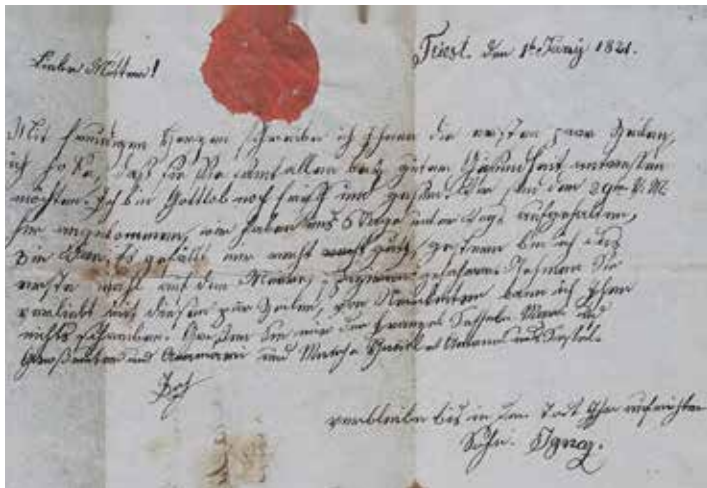 Triest. den 1t Juny 1821.
Liebe Mutter!
Mit freudigen Herzen schreibe ich Ihnen die ersten paar Zeilen,
ich hoffe, daß sie Sie samt allen bey guter Gesundheit antreffen
möchten. Ich bin Gottlob noch frisch und gesund. Wir sind den 29ten v. M.
hier angekommen, wir haben uns 5 Tage unter Wegs aufgehalten,
Wien. Es gefällt mir recht gut, gestern bin ich das
erste mahl auf dem Meere gefahren. Nehmen Sie
vorlieb mit diesen paar Zeilen, von Neuheiten kann ich Ihnen
nichts schreiben. Grüßen Sie mir den
Großvater und und
Ich
verbleibe bis in den Tod Ihr aufrichtiger
Sohn. Ignaz.